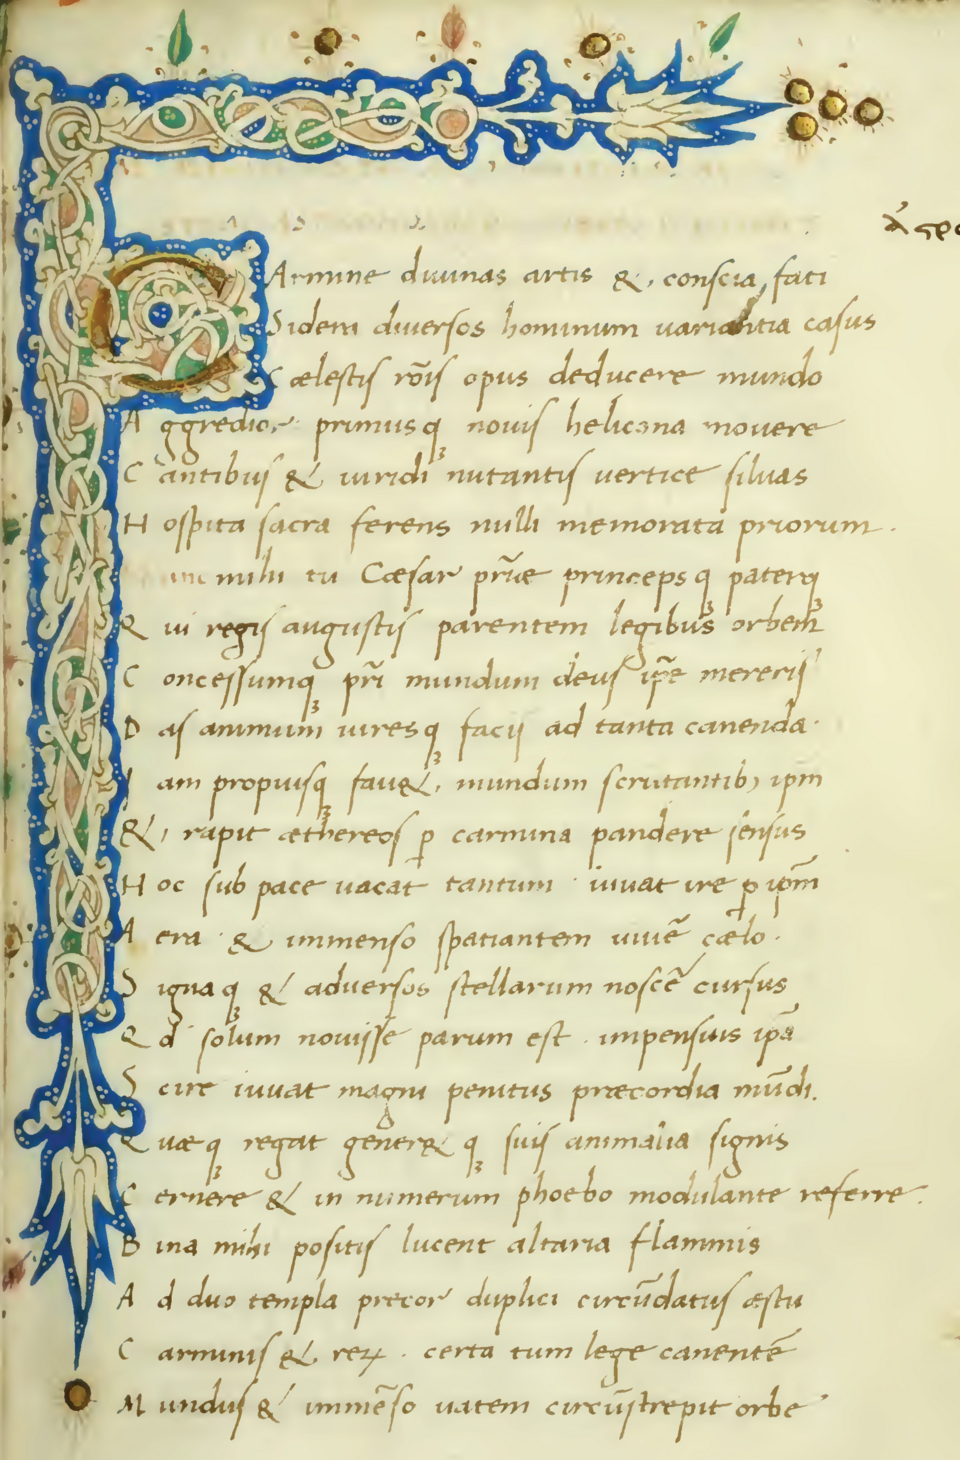 CArmine diuinas artis &, conscia fati
Sidera diuersos hominum uariantia casus
Cælestis rōis opus deducere mundo
Aggredior primusqꝫ nouis helicona mouere
Cantibus & uiridi nutantis uertice siluas
Hospita sacra ferens nulli memorata priorum.
mihi tu Cæsar pr̄iæ princepsqꝫ paterqꝫ
Qui regis augustis parentem legibus orbem
Concessumqꝫ pr̄i mundum deus ip̄e mereris
Das animum uiresqꝫ facis ad tanta canenda.
Iam propiusqꝫ fau&, mundus scrutantibꝫ ipm
&, rapit æthereos ꝑ carmina pandere sensus
Hoc sub pace uacat tantum. iuuat ire ꝑ ip̄m
Aera. & immenso spatiantem uiuē cælo.
Signaqꝫ & aduersos stellarum noscē cursus
Qd solum nouisse parum est. impensius ip̄a
Scire iuuat magni penitus præcordia mūdi.
Quæqꝫ regat gener&qꝫ suis animalia signis
Cernere & in numerum phoebo modulante referre.
Bina mihi positis lucent altaria flammis
Ad duo templa precor duplici circūdatus æstu
Carminis & reꝝ. certa cum lege canentē
Mundus & immēso uatem circūstrepit orbe